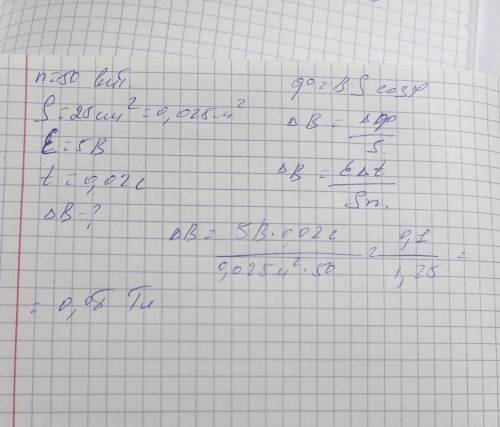 n=50 вит.
S=25см²=0,025м²
ε=5В
t=0,02с
ΔB-?
φ=BS cosφ
ΔB = Δφ/S.
ΔB = εΔt/Sn.
ΔB = 5В·0,02с/0,025м²·50 = 0,1/1,25 =
= Тл.